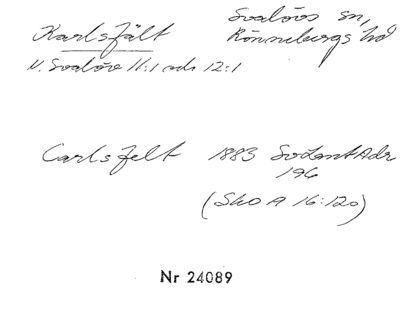 Karlsfält
Svalövs sn,
Rönnebergs hd
N. Svalöv 11:1 och 12:1
Carlsfelt 1883 SvLantAdr
196
(Sko A 16:120)
Nr 24089